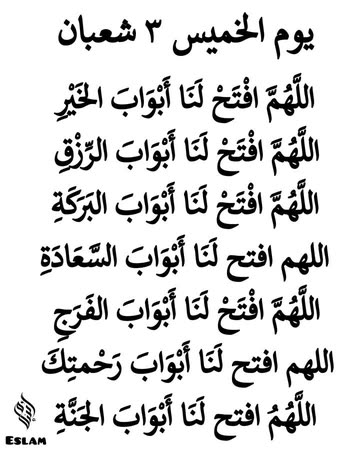 يوم الخميس ٣ شعبان
اللَّهُمَّ افْتَحْ لَنَا أَبْوَابَ الخَيْرِ
اللَّهُمَّ افْتَحْ لَنَا أَبْوَابَ الرِّزْقِ
اللَّهُمَّ افْتَحْ لَنَا أَبْوَابَ البَرَكَةِ
اللهم افتح لَنَا أَبْوَابَ السَّعَادَةِ
اللَّهُمَّ افْتَحْ لَنَا أَبْوَابَ الفَرَجِ
اللهم افتح لَنَا أَبْوَابَ رَحْمتِكَ
اللَّهُمُ افتح لَنَا أَبْوَابَ الجَنَّةِ
ESLAM